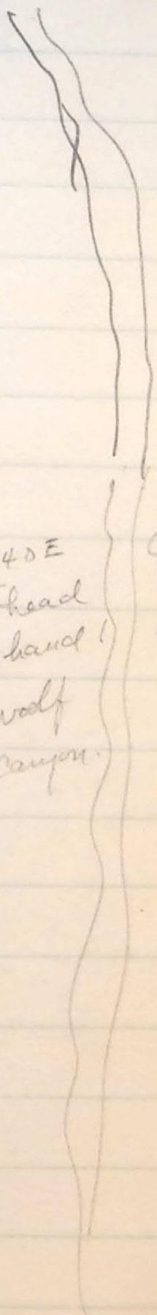 40E
head
hand!
Canyon.